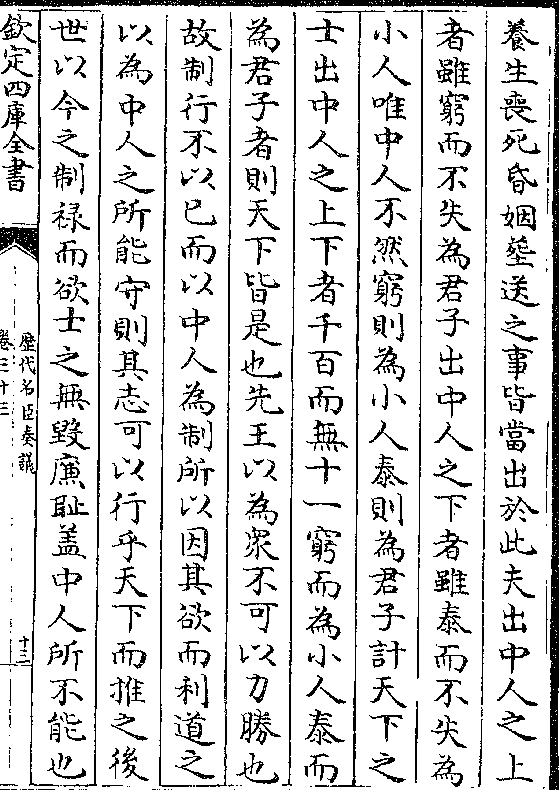 養生喪死昏姻塟送之事皆當出於此夫出中人之上
者雖窮而不失為君子出中人之下者雖泰而不失為
小人唯中人不然窮則為小人泰則為君子計天下之
士出中人之上下者千百而無十一窮而為小人泰而
為君子者則天下皆是也先王以為衆不可以力勝也
故制行不以已而以中人為制所以因其欲而利道之
以為中人之所能守則其志可以行乎天下而推之後
世以今之制禄而欲士之無毀廉耻盖中人所不能也
欽定四庫全書
歷代名臣奏議
卷三十三
十二